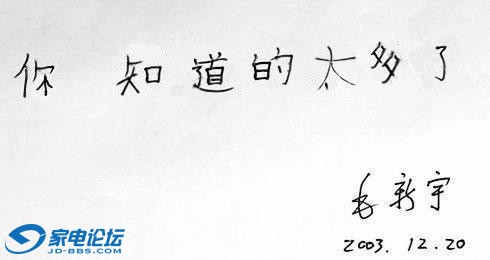 你知道的太多了
毛新宇
2003.12.20
家电论坛
JD-BBS.COM